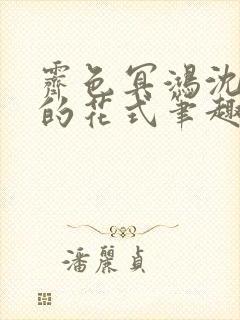 霽色冥鴻沈
的花式筆趣
潘麗貞